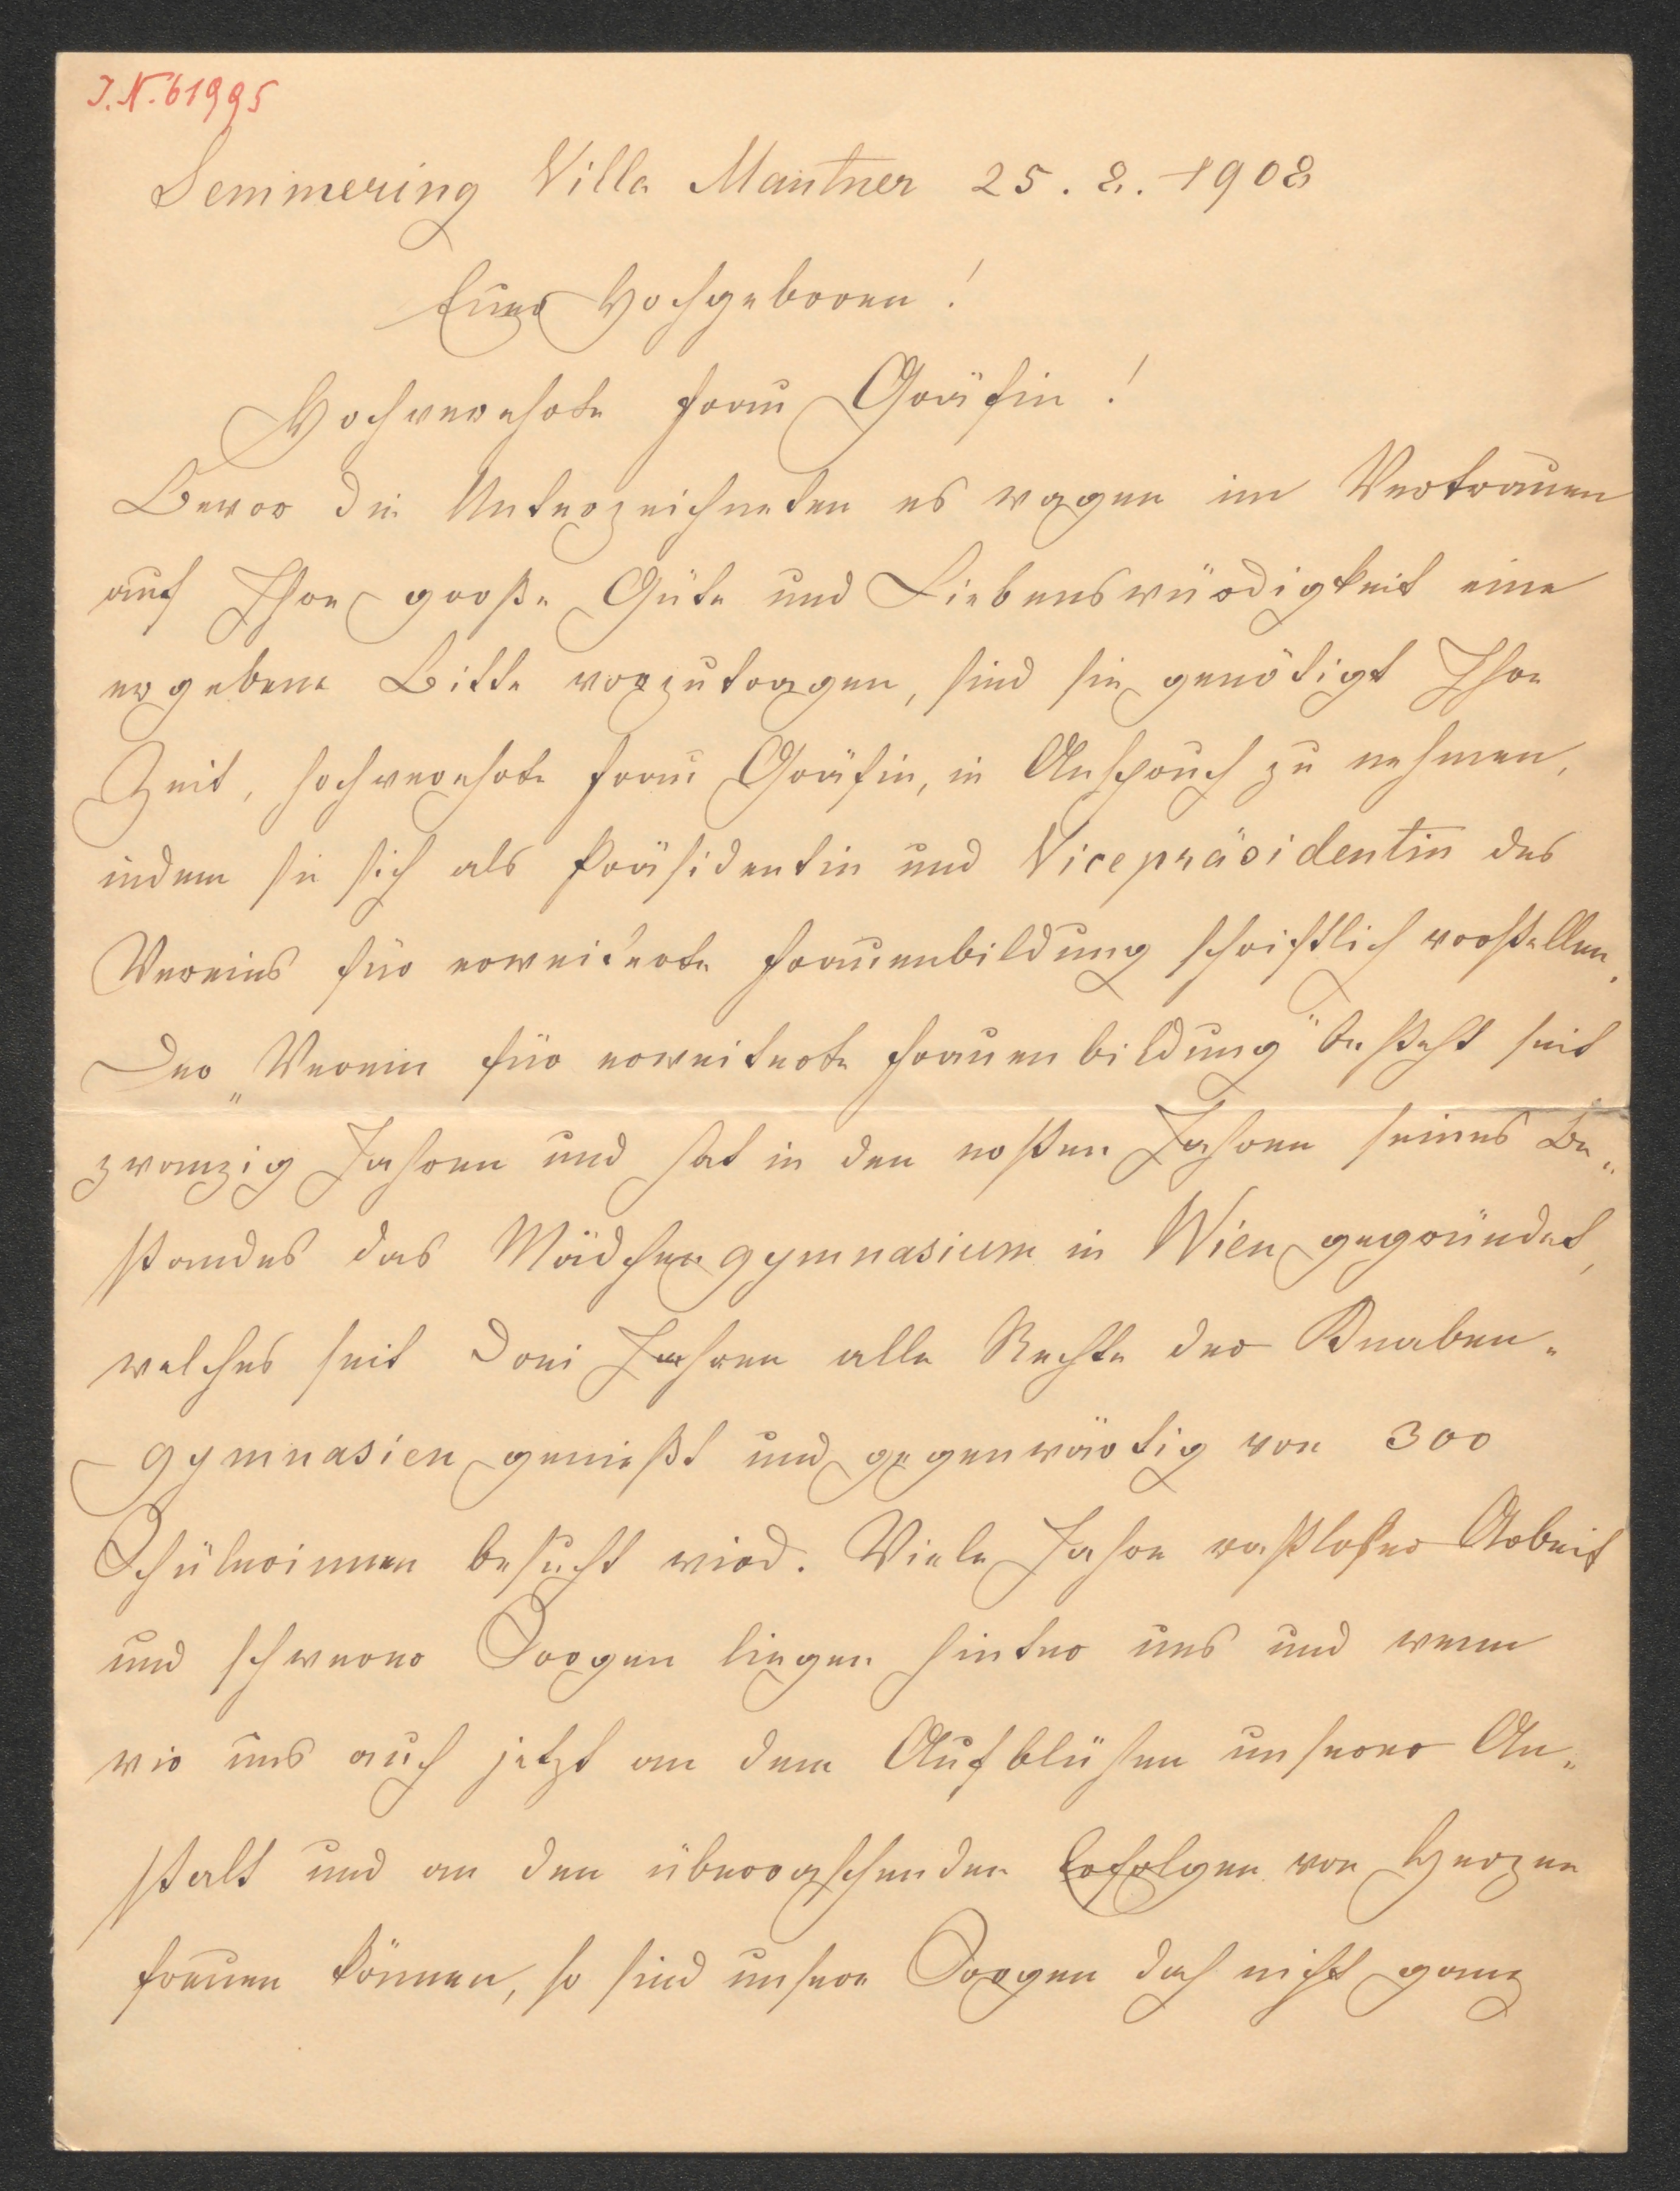 J.N. 61995
Semmering Villa Mautner 25. 8. 1908
Euer Hochgeboren!
Hochverehrte Frau Gräfin!
Bevor die Unterzeichneten es wagen im Vertrauen
auf Ihre große Güte und Liebenswürdigkeit eine
ergebene Bitte vorzutragen, sind sie genötigt Ihre
Zeit, hochverehrte Frau Gräfin, in Anspruch zu nehmen,
indem sie sich als Präsidentin und Vicepräsidentin des
Vereins für erweiterte Frauenbildung schriftlich vorstellen.
Der „Verein für erweiterte Frauenbildung“ besteht seit
zwanzig Jahren und hat in den ersten Jahren seines Be„
standes das Mädchengymnasium in Wien gegründet,
welches seit drei Jahren alle Rechte der Knaben„
gymnasien genießt und gegenwärtig von 300
Schülerinnen besucht wird. Viele Jahre rastloser Arbeit
und schwerer Sorgen liegen hinter uns und wenn
wir uns auch jetzt an dem Aufblühen unserer An„
stalt und an den überraschenden Erfolgen von Herzen
freuen können, so sind unsere Sorgen doch nicht ganz